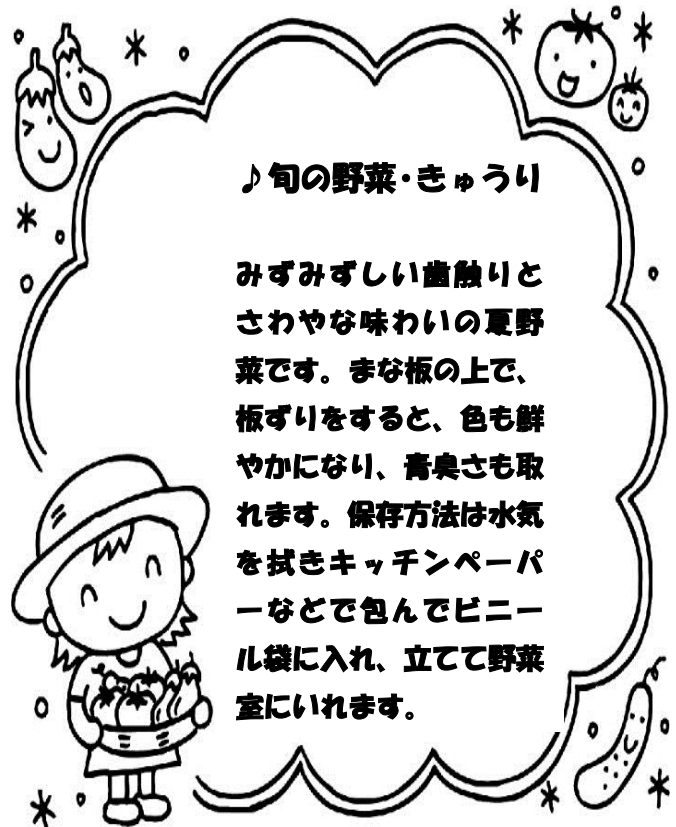 ♪旬の野菜・きゅうり
みずみずしい歯触りと
さわやな味わいの夏野
菜です。まな板の上で、
板ずりをすると、色も鮮
やかになり、青臭さも取
れます。保存方法は水気
を拭きキッチンペーパ
ーなどで包んでビニー
ル袋に入れ、立てて野菜
室にいれます。